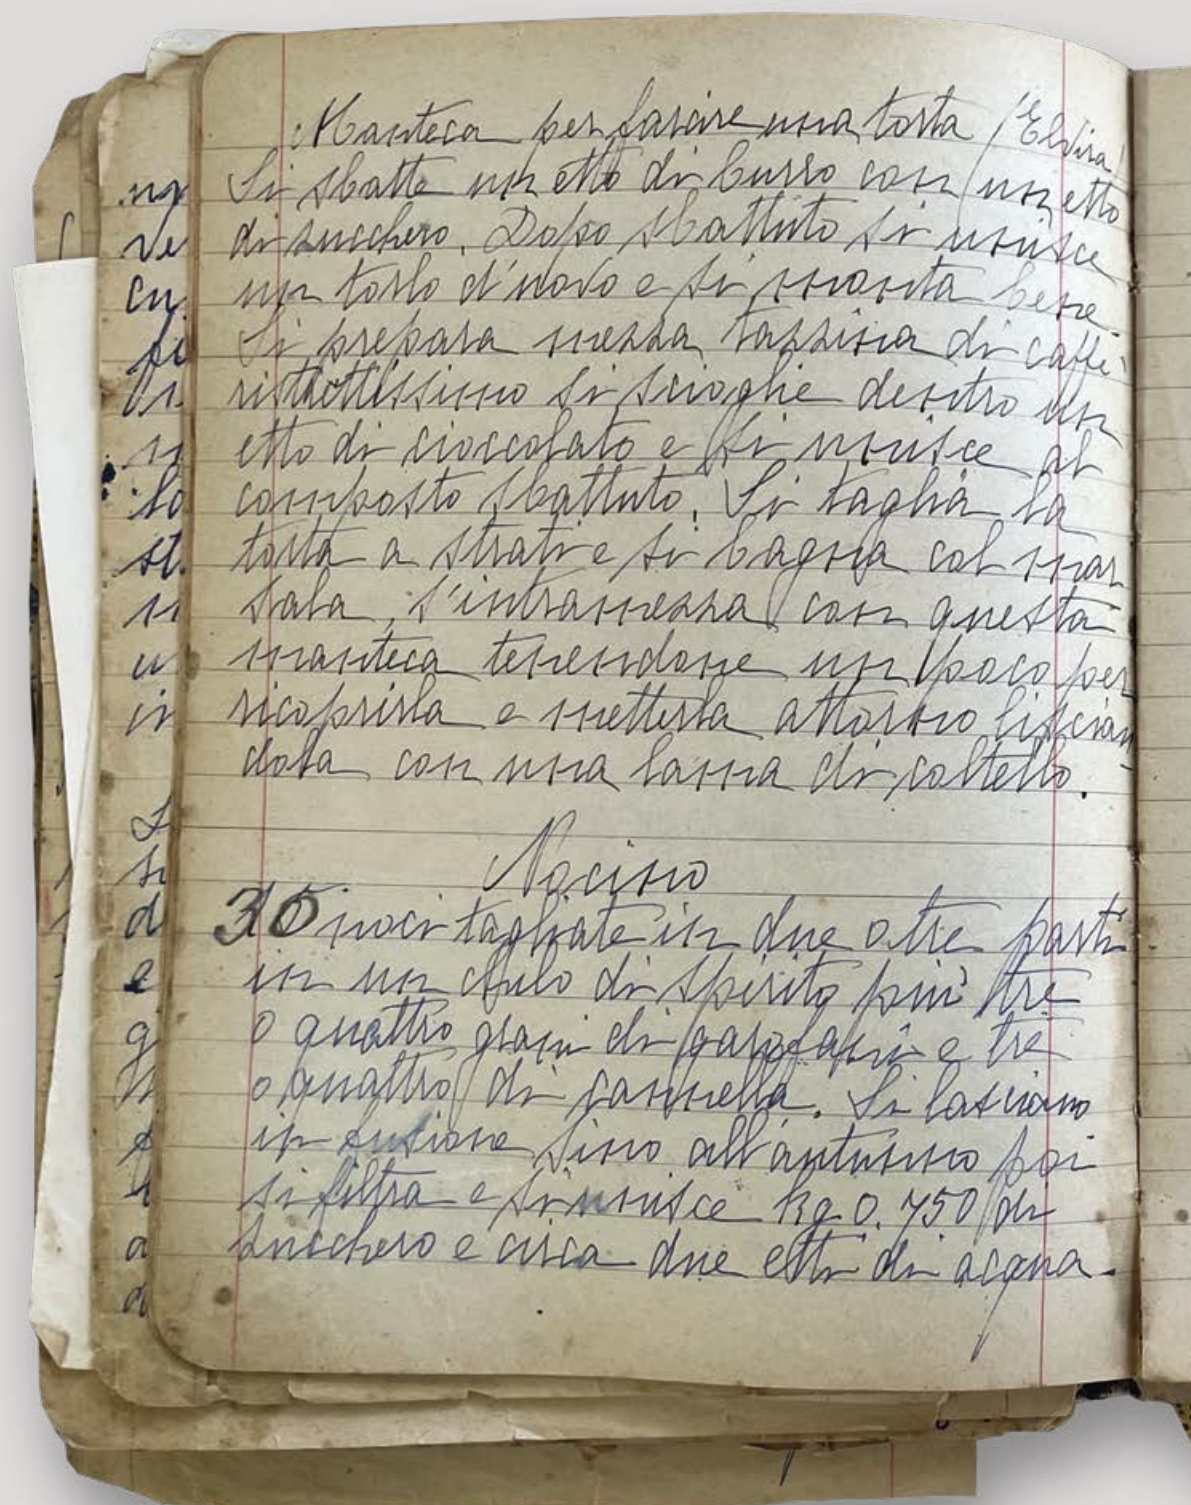 Manteca per farcire una torta (Elvira)
Si sbatte un etto di burro con un etto
di zucchero. Dopo sbattuto si unisce
un torlo d'uovo e si monta bene.
Si prepara mezza tazzina di caffè
ristrettissimo si scioglie dentro un
etto di cioccolato e si unisce al
composto sbattuto. Si taglia la
torta a strati e si bagna col mar
sala, s'intramezza con questa
manteca tenendone un poco per
ricoprirla e metterla attorno liscian
dola con una lama di coltello.
Nocino
35 noci tagliate in due o tre parti
in un chilo di spirito più tre
o quattro grani di garofani e tre
o quattro di cannella. Si lasciano
in fusione sino all'autunno poi
si filtra e si unisce Kg 0.750 di
zucchero e circa due etti di acqua.